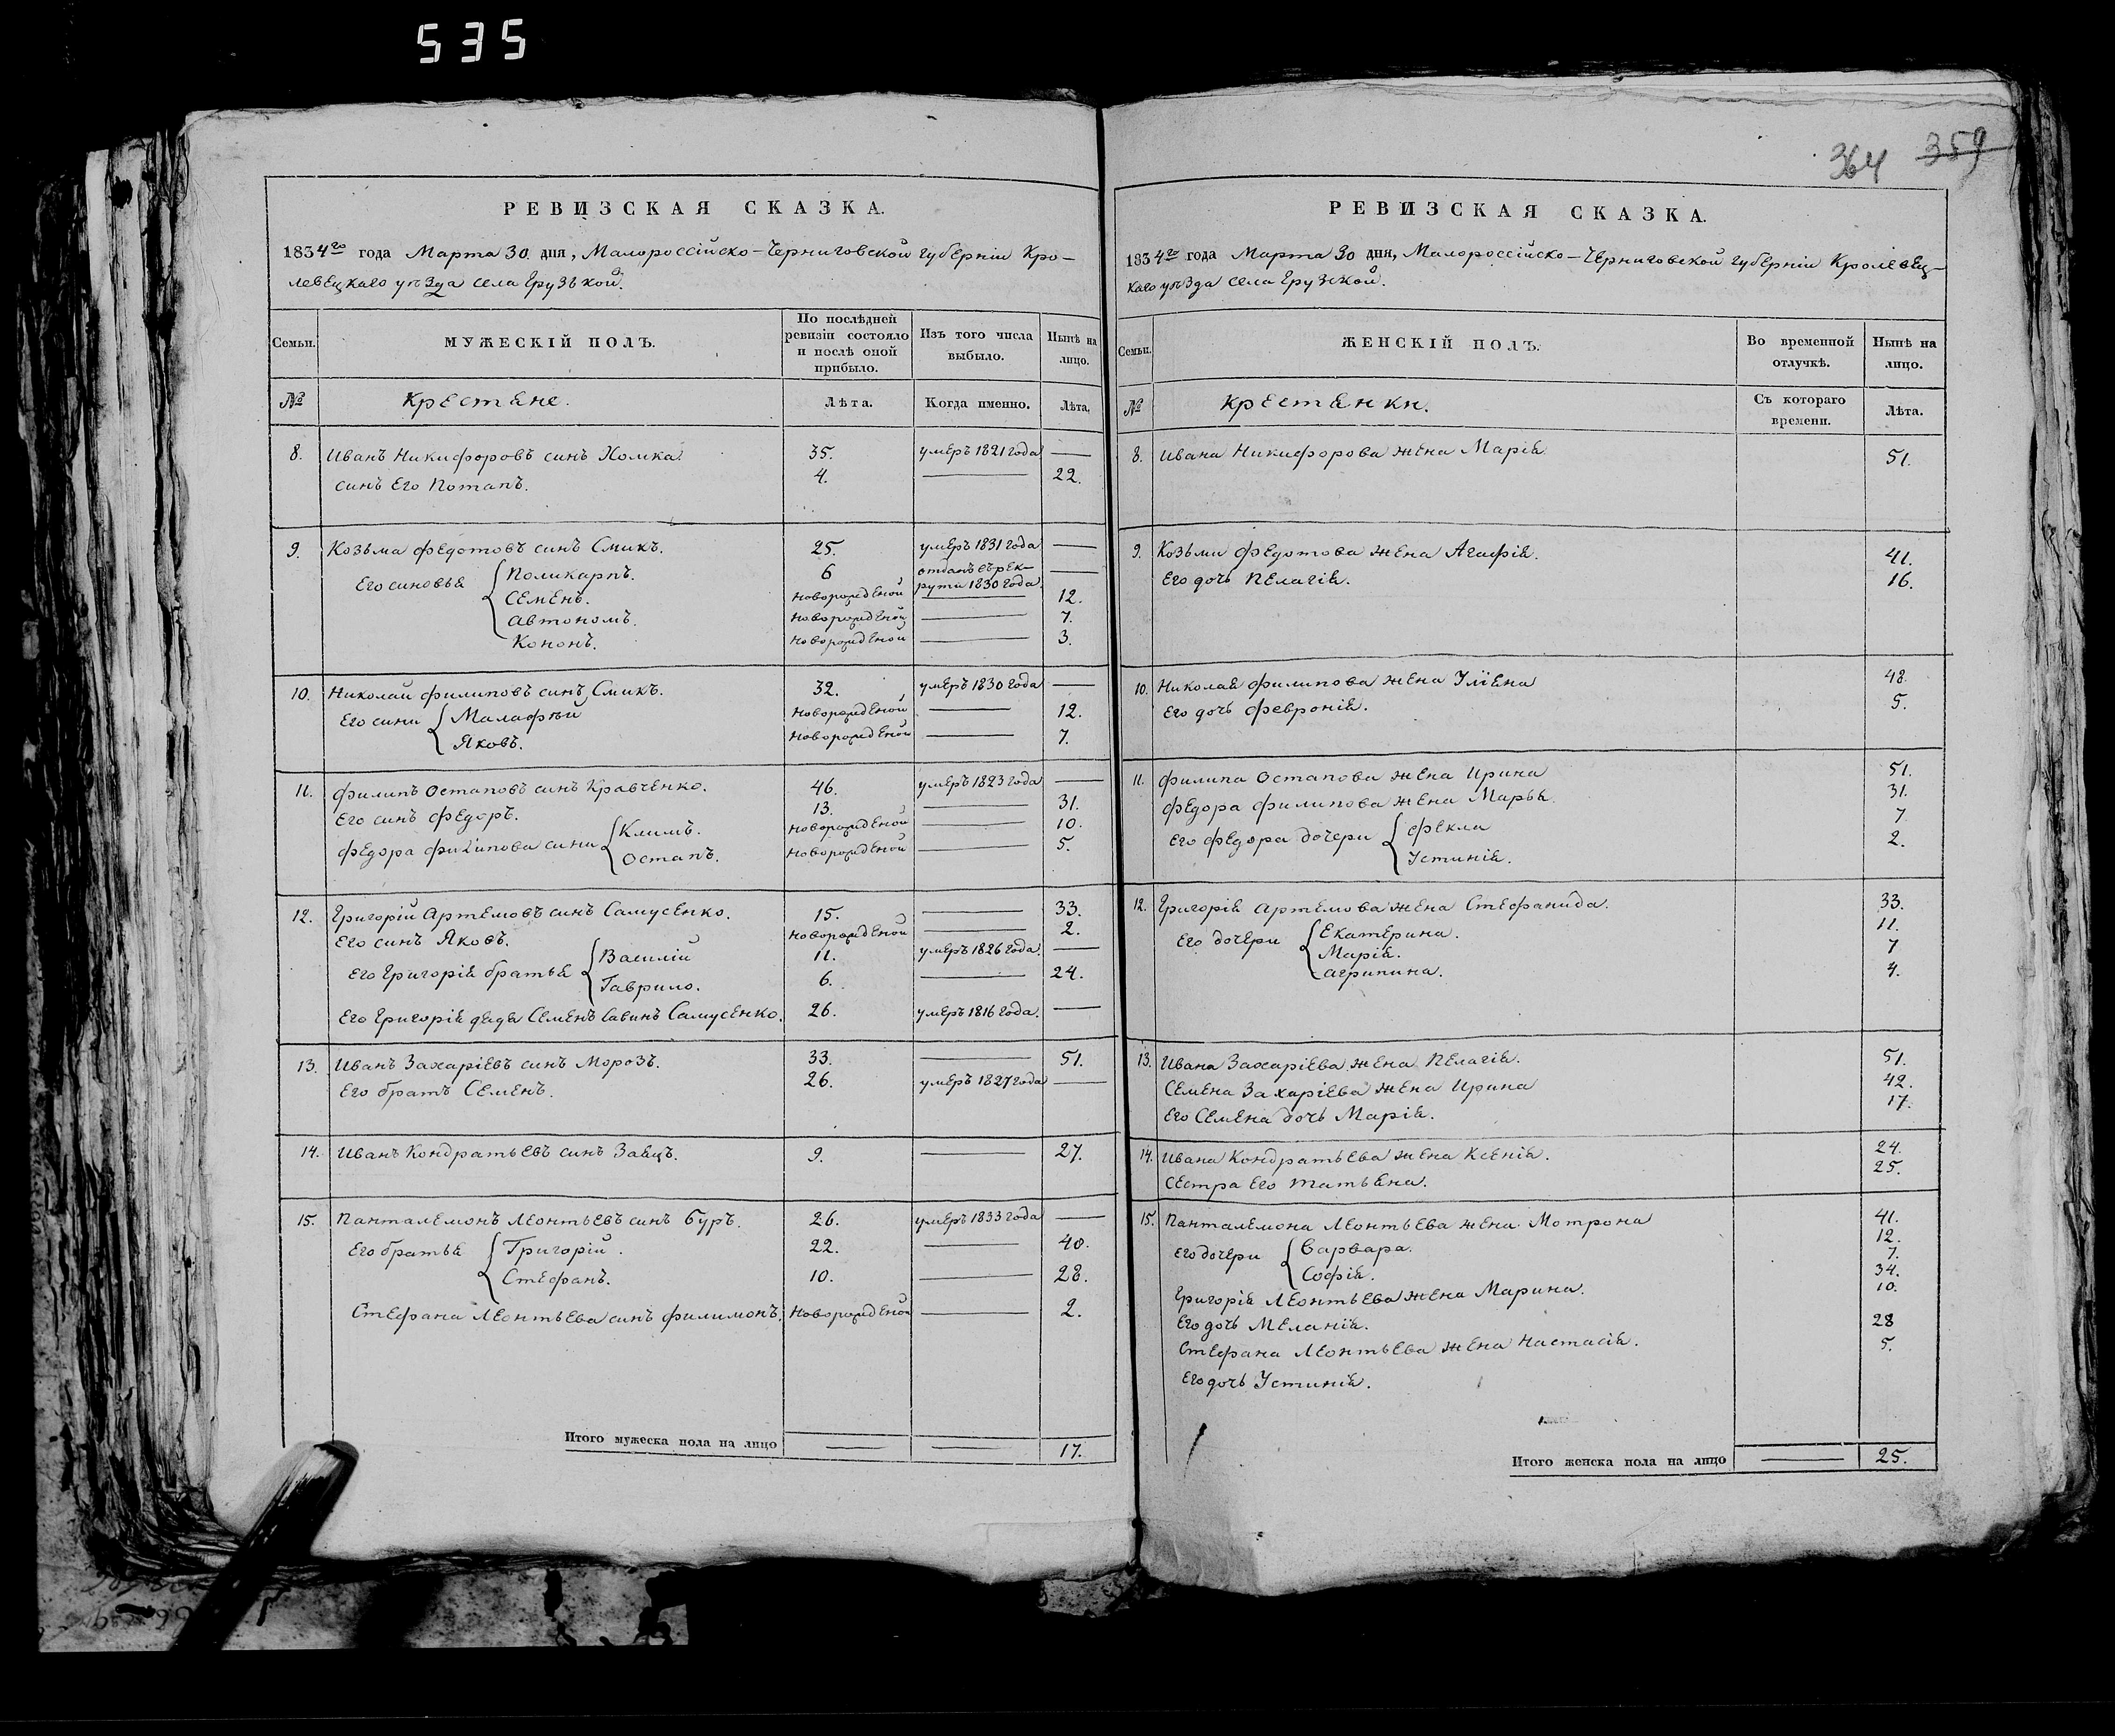 535
364 359
РЕВИЗСКАЯ СКАЗКА.
1834го года Марта 30 дня, Малороссійско-Черниговской губерніи Кро-
левецкаго уѣзда села Грузькой.
Семьи.
МУЖЕСКІЙ ПОЛЪ.
По послѣдней ревизіи состояло и послѣ оной прибыло.
Изъ того числа выбыло.
Нынѣ на лицо.
№ Крестяне. Лѣта. Когда именно. Лѣта.
8. Иванъ Никифоровъ синъ Хомка 35. умеръ 1821 года —
синъ Его Потапъ. 4. — 22.
9. Козьма Федотовъ синъ Смикъ. 25. умеръ 1831 года —
Его синовья Поликарпъ. 6 отданъ въ рек-
рути 1830 года —
Семенъ. новорожденой — 12.
Автономъ. новорожденой — 7.
Кононъ. новорожденой — 3.
10. Николай Филиповъ синъ Смикъ. 32. умеръ 1830 года —
Его сини Малафѣй новорожденой — 12.
Яковъ. новорожденой — 7.
11. Филипъ Остаповъ синъ Кравченко. 46. умеръ 1823 года —
Его синъ Федоръ. 13. — 31.
Федора Филипова сини Климъ. новорожденой — 10.
Остапъ. новорожденой — 5.
12. Григорій Артемовъ синъ Самусенко. 15. — 33.
Его синъ Яковъ. новорожденой — 2.
Его Григорія братья Василій 11. умеръ 1826 года. —
Гаврило. 6. — 24.
Его Григорія дядя Семенъ Савинъ Самусенко. 26. умеръ 1816 года. —
13. Иванъ Захаріевъ синъ Морозъ. 33. — 51.
Его братъ Семенъ. 26. умеръ 1827 года —
14. Иванъ Кондратьевъ синъ Заяцъ. 9. — 27.
15. Панталемонъ Леонтьевъ синъ Буръ. 26. умеръ 1833 года —
Его братья Григорій. 22. — 40.
Стефанъ. 10. — 28.
Стефана Леонтьева синъ Филимонъ. новорожденой — 2.
Итого мужеска пола на лицо — — 17.
РЕВИЗСКАЯ СКАЗКА.
1834го года Марта 30 дня, Малороссійско-Черниговской губерніи Кролевец-
каго уѣзда села Грузской.
Семьи.
ЖЕНСКІЙ ПОЛЪ.
Во временной отлучкѣ.
Нынѣ на лицо.
№ Крестянки. Съ котораго времени. Лѣта.
8. Ивана Никифорова жена Марія 51.
9. Козьми Федотова жена Агафія. 41.
Его дочь Пелагія. 16.
10. Николая Филипова жена Уліяна 48.
Его дочь Февронія. 5.
11. Филипа Остапова жена Ирина 51.
Федора Филипова жена Марья. 31.
Его Федора дочери Фекла 7
Устинія. 2.
12. Григорія Артемова жена Стефанида. 33.
Его дочери Екатерина. 11.
Марія. 7
Агрипина. 4.
13. Ивана Захаріева жена Пелагія. 51.
Семена Захаріева жена Ирина 42.
Его Семена дочь Марія. 17.
14. Ивана Кондратьева жена Ксенія. 24.
Сестра Его Татьяна. 25.
15. Панталемона Леонтьева жена Мотрона 41.
Его дочери Варвара. 12.
Софія. 7.
Григорія Леонтьева жена Марина. 34.
Его дочь Меланія. 10.
Стефана Леонтьева жена Настасія. 28
Его дочь Устинія. 5.
Итого женска пола на лицо — 25.